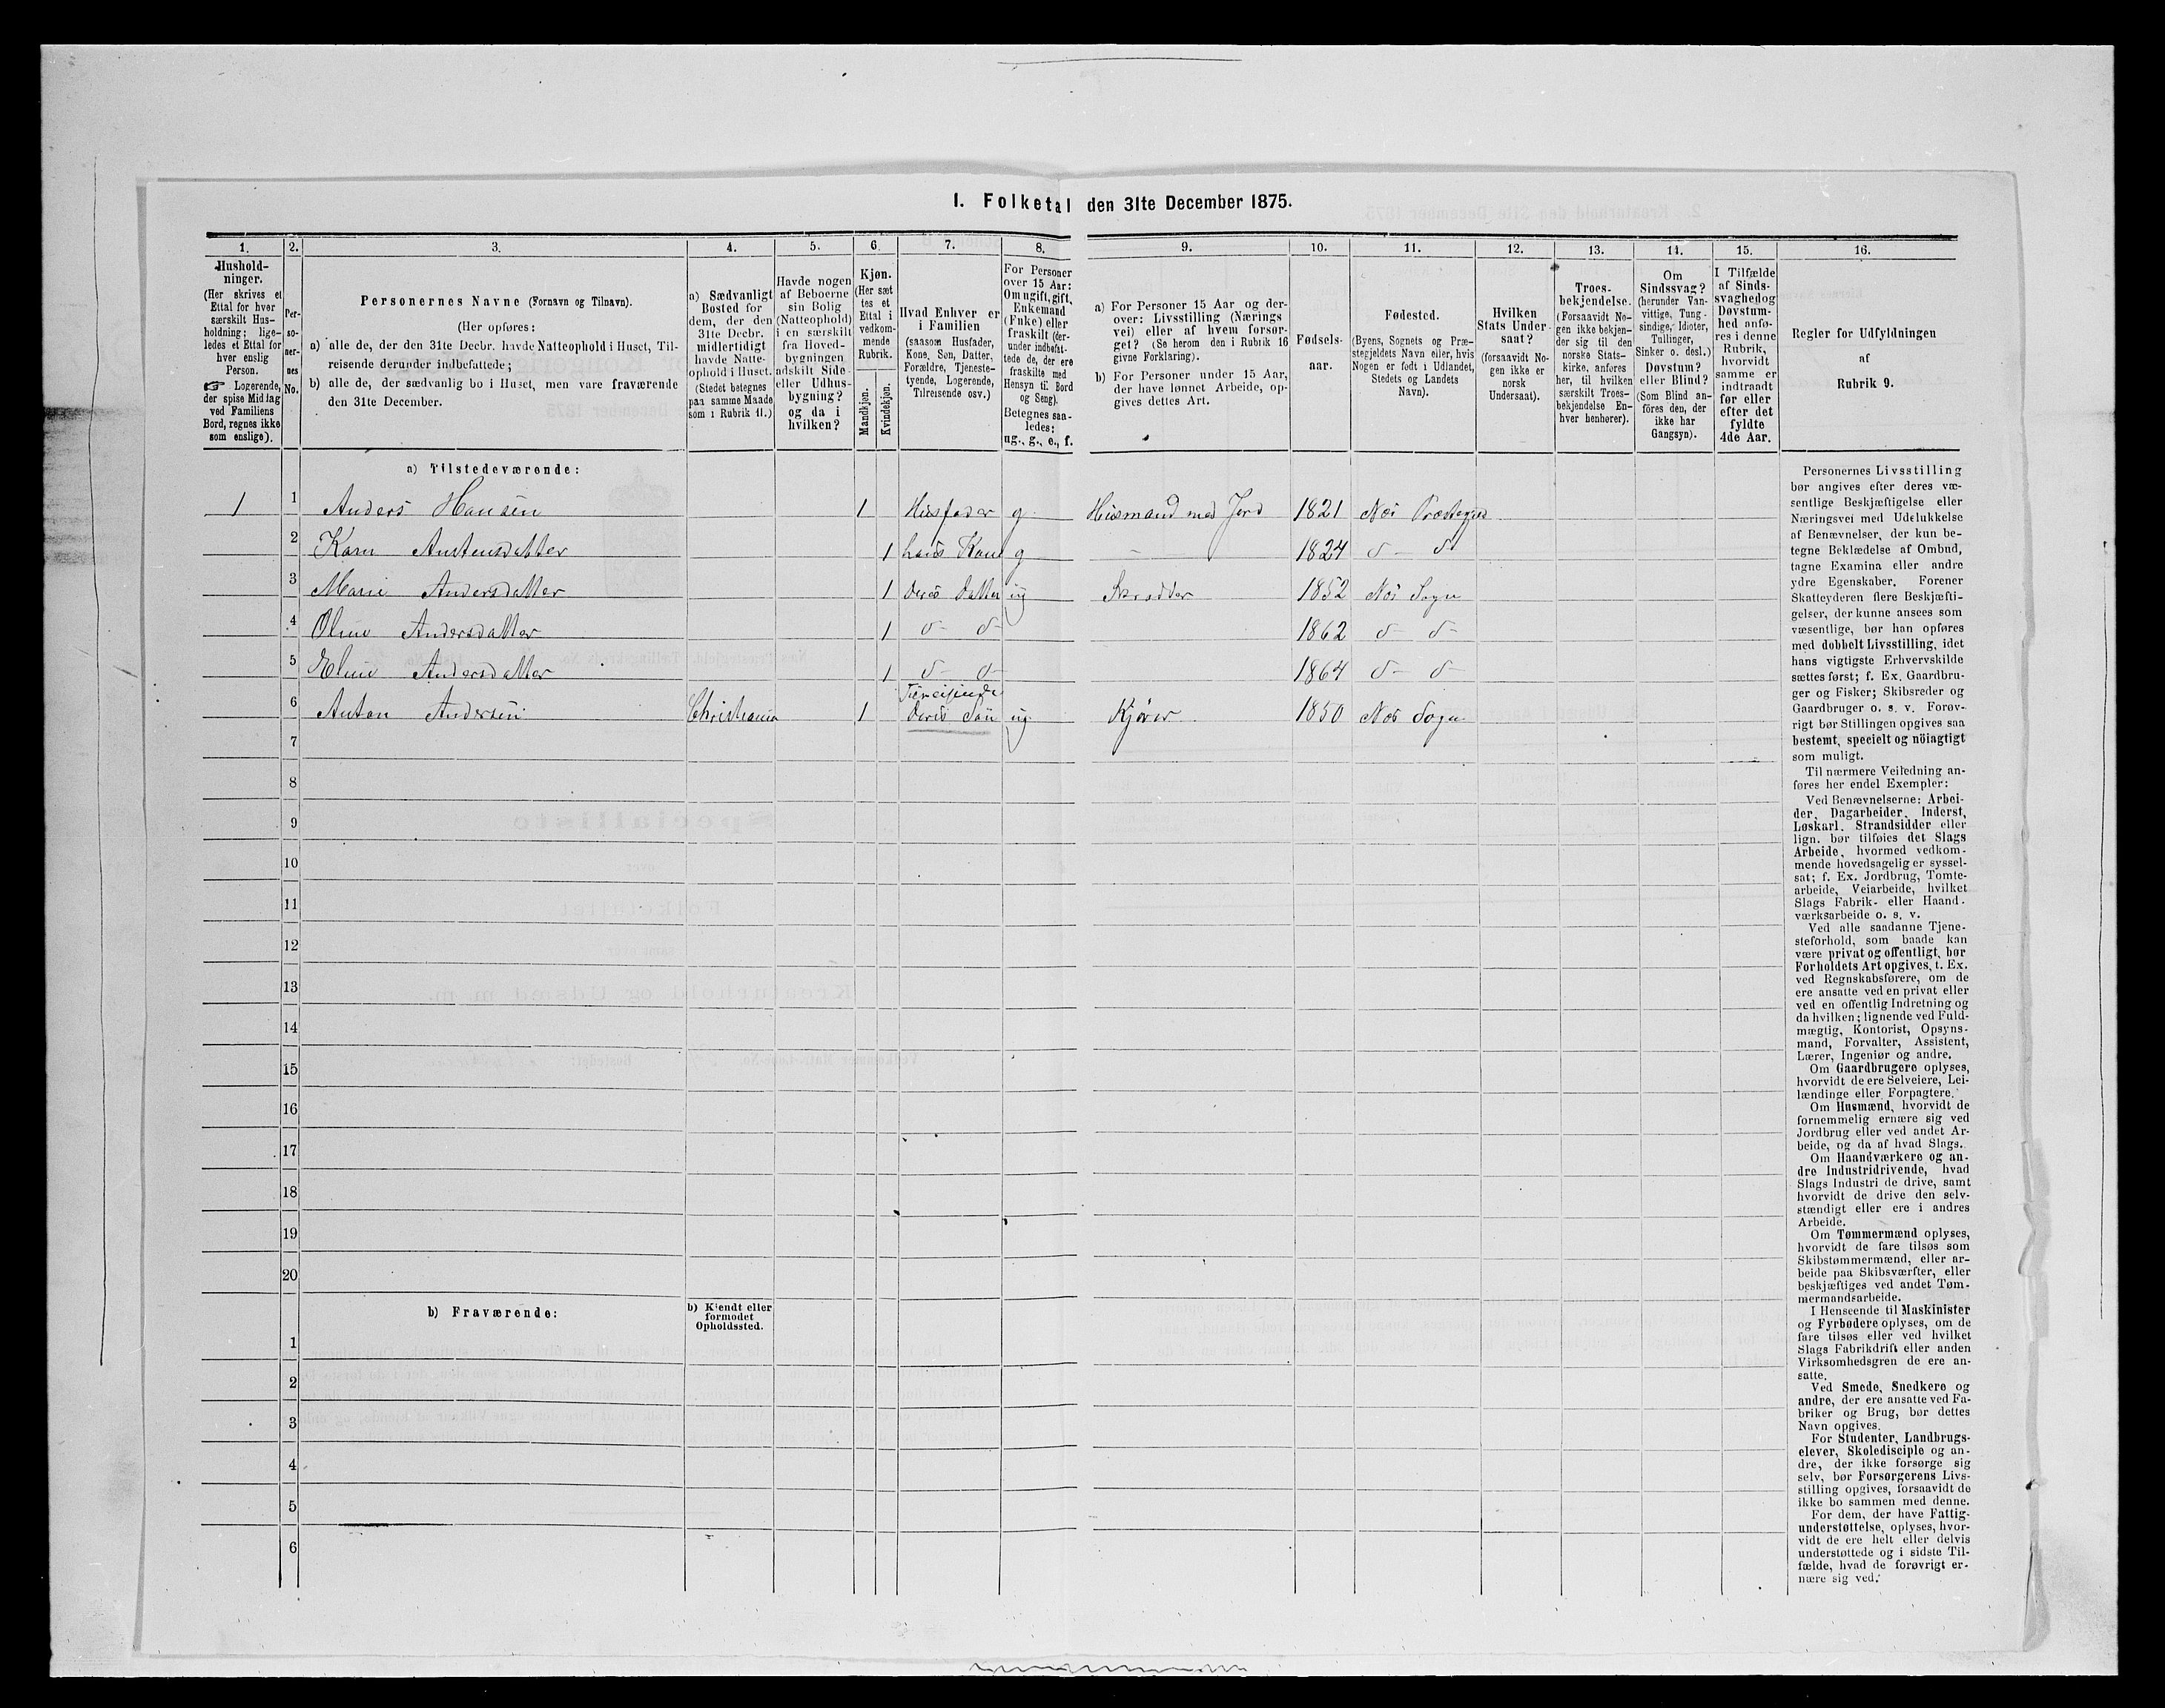 I. Folketal den 31te December 1875.
1. 2. 3. 4. 5. 6. 7. 8. 9. 10. 11. 12. 13. 14. 15. 16.
Hushold-
ninger.
(Her skrives et
Ettal for hver
særskilt Hus-
holdning; lige-
ledes et Ettal for
hver enslig
Person.
☞ Logerende,
der spise Middag
ved Familiens
Bord, regnes ikke
som enslige).
Per-
so-
ner-
nes
No.
Personernes Navne (Fornavn og Tilnavn).
(Her opføres:
a) alle de, der den 31te Decbr. havde Natteophold i Huset, Til-
reisende derunder indbefattede;
b) alle de, der sædvanlig bo i Huset, men vare fraværende
den 31te December.
a) Sædvanligt
Bosted for
dem, der den
31te Decbr.
midlertidigt
havde Natte-
ophold i Huset.
(Stedet betegnes
paa samme Maade
som i Rubrik 11.)
Havde nogen
af Beboerne
sin Bolig
(Natteophold)
i en særskilt
fra Hoved-
bygningen
adskilt Side-
eller Udhus-
bygning?
og da i
hvilken?
Kjøn.
(Her sæt-
tes et
Ettal i
vedkom-
mende
Rubrik.
Mandkjøn.
Kvindekjøn.
Hvad Enhver er
i Familien
(saasom Husfader,
Kone, Søn, Datter,
Forældre, Tjeneste-
tyende, Logerende,
Tilreisende osv.)
For Personer
over 15 Aar:
Om ugift, gift,
Enkemand
(Enke) eller
fraskilt (der-
under indbefat-
tede de, der ere
fraskilte med
Hensyn til Bord
og Seng).
Betegnes saa-
ledes:
ug., g., e., f.
a) For Personer 15 Aar og der-
over: Livsstilling (Nærings
vei) eller af hvem forsør-
get? (Se herom den i Rubrik 16
givne Forklaring).
b) For Personer under 15 Aar,
der have lønnet Arbeide, op-
gives dettes Art.
Fødsels-
aar.
Fødested.
(Byens, Sognets og Præ-
stegjeldets Navn eller, hvis
Nogen er født i Udlandet,
Stedets og Landets
Navn).
Hvilken
Stats Under-
saat?
(forsaavidt No-
gen ikke er
norsk
Undersaat).
Troes-
bekjendelse.
(Forsaavidt No-
gen ikke bekjen-
der sig til den
norske Stats-
kirke, anføres
her, til hvilken
særskilt Troes-
bekjendelse En-
hver henhører).
Om
Sindssvag?
(herunder Van-
vittige, Tung-
sindige, Idioter,
Tullinger,
Sinker o. desl.)
Døvstum?
eller Blind?
(Som Blind an-
føres den, der
ikke har
Gangsyn).
I Tilfælde
af Sinds-
svaghed og
Døvstum-
hed anfø-
res i denne
Rubrik,
hvorvidt
samme er
indtraadt
før eller
efter det
fyldte
4de Aar.
Regler for Udfyldningen
af
Rubrik 9.
a) Tilstedeværende:
1 1 Anders Hansen 1 Husfader g Husmand med Jord 1821 Næs Præstegjeld
2 Karn Austensdatter 1 hans Kone g - 1824 d- d-
3 Marie Andersdatter 1 deres Datter ug Skrædder 1852 Næs Sogn
4 Oline Andersdatter 1 d- d- 1862 d- d-
5 Eline Andersdatter 1 d- d- 1864 d- d-
Tilreisende
6 Anton Andersen Christiania 1 deres Søn ug Kjører 1850 Næs Sogn
7
8
9
10
11
12
13
14
15
16
17
18
19
20
b) Fraværende:
b) Kjendt eller
formodet
Opholdssted.
1
2
3
4
5
6
Personernes Livsstilling
bør angives efter deres væ-
sentlige Beskjæftigelse eller
Næringsvei med Udelukkelse
af Benævnelser, der kun be-
tegne Beklædelse af Ombud,
tagne Examina eller andre
ydre Egenskaber. Forener
Skatteyderen flere Beskjæfti-
gelser, der kunne ansees som
væsentlige, bør han opføres
med dobbelt Livsstilling, idet
hans vigtigste Erhvervskilde
sættes først; f. Ex. Gaardbru-
ger og Fisker; Skibsreder og
Gaardbruger o. s. v. Forøv-
rigt bør Stillingen opgives saa
bestemt, specielt og nöiagtigt
som muligt.
Til nærmere Veiledning an-
føres her endel Exempler:
Ved Benævnelserne: Arbei-
der, Dagarbeider, Inderst,
Løskarl, Strandsidder eller
lign. bør tilføies det Slags
Arbeide, hvormed vedkom-
mende hovedsagelig er syssel-
sat; f. Ex. Jordbrug, Tomte-
arbeide, Veiarbeide, hvilket
Slags Fabrik- eller Haand-
værksarbeide o. s. v.
Ved alle saadanne Tjene-
steforhold, som baade kan
være privat og offentligt, bør
Forholdets Art opgives, t. Ex.
ved Regnskabsførere, om de
ere ansatte ved en privat eller
ved en offentlig Indretning og
da hvilken; lignende ved Fuld-
mægtig, Kontorist, Opsyns-
mand, Forvalter, Assistent,
Lærer, Ingeniør og andre.
Om Gaardbrugere oplyses,
hvorvidt de ere Selveiere, Lei-
lændinge eller Forpagtere.
Om Husmænd, hvorvidt de
fornemmelig ernære sig ved
Jordbrug eller ved andet Ar-
beide, og da af hvad Slags.
Om Haandværkere og an-
dre Industridrivende, hvad
Slags Industri de drive, samt
hvorvidt de drive den selv-
stændigt eller ere i andres
Arbeide.
Om Tømmermænd oplyses,
hvorvidt de fare tilsøs som
Skibstømmermænd, eller ar-
beide paa Skibsværfter, eller
beskjæftiges ved andet Tøm-
mermandsarbeide.
I Henseende til Maskinister
og Fyrbødere oplyses, om de
fare tilsøs eller ved hvilket
Slags Fabrikdrift eller anden
Virksomhedsgren de ere an-
satte.
Ved Smede, Snedkere og
andre, der ere ansatte ved Fa-
briker og Brug, bør dettes
Navn opgives.
For Studenter, Landbrugs-
elever, Skoledisciple og an-
dre, der ikke forsørge sig
selv, bør Forsørgerens Livs-
stilling opgives, forsaavidt de
ikke bo sammen med denne.
For dem, der have Fattig-
understøttelse, oplyses, hvor-
vidt de ere helt eller delvis
understøttede og i sidste Til-
fælde, hvad de forøvrigt er-
nære sig ved.